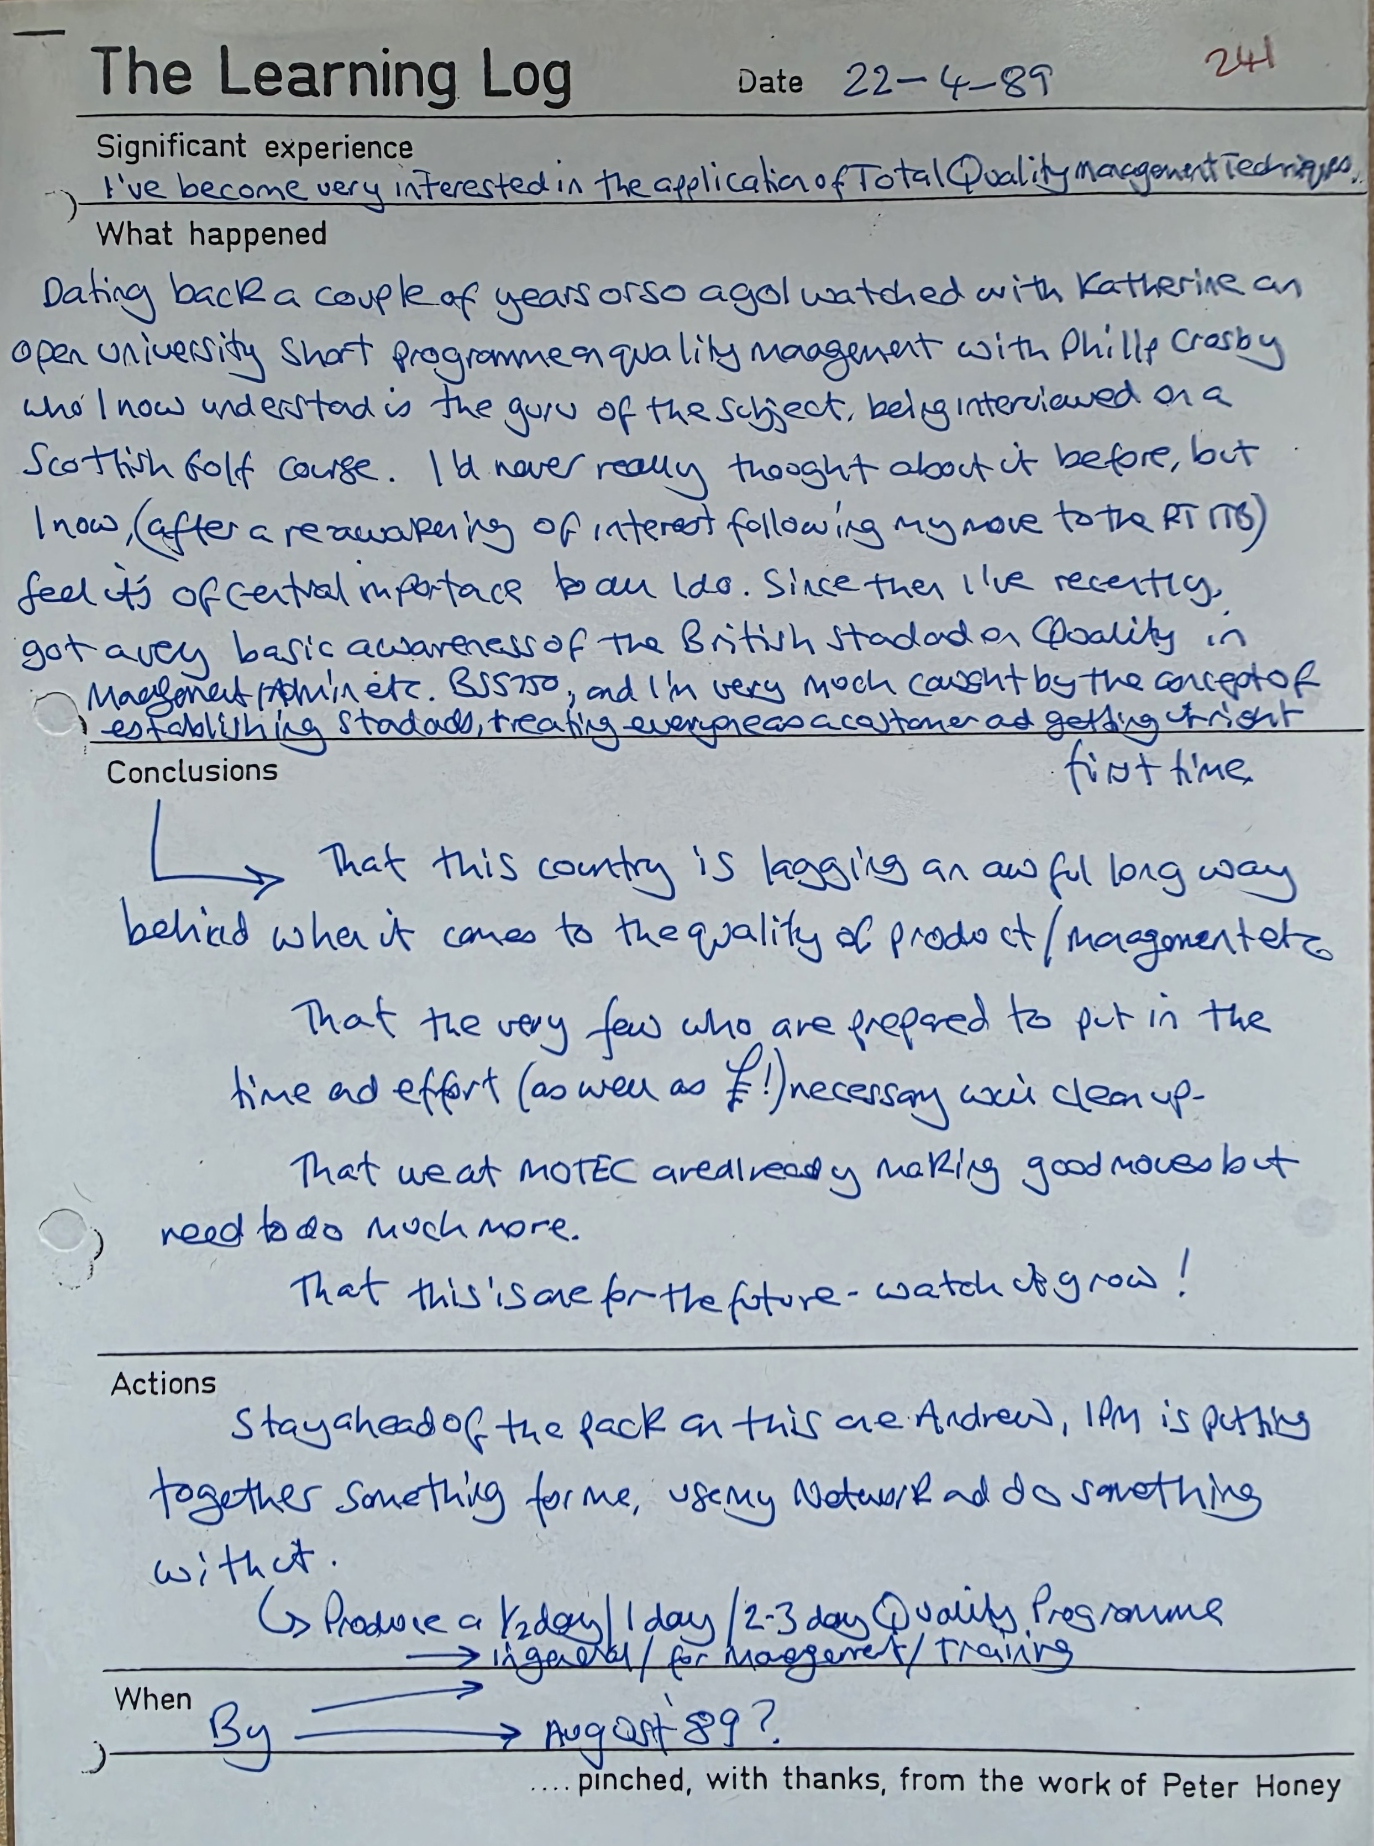 The Learning Log Date 22-4-89 241
Significant experience
I've become very interested in the application of Total Quality Management Techniques.
What happened
Dating back a couple of years or so ago I watched with Katherine an
open university short programme on quality management with Phillp Crosby
who I now understand is the guru of the subject, being interviewed on a
Scottish Golf course. I'd never really thought about it before, but
I now, (after a reawakening of interest following my move to the RTITB)
feel it's of central importance to all I do. Since then I've recently,
got a very basic awareness of the British standard on Quality in
Management/Admin etc. BS5750, and I'm very much caught by the concept of
establishing standards, treating everyone as a customer and getting it right
first time
Conclusions
That this country is lagging an awful long way
behind when it comes to the quality of product/management etc
That the very few who are prepared to put in the
time and effort (as well as £!) necessary will clean up-
That we at MOTEC are already making good moves but
need to do much more.
That this is one for the future - watch it grow!
Actions
Stay ahead of the pack on this one. Andrew, IPM is putting
together something for me, use my Network and do something
with it.
Produce a 1/2 day/1 day/2-3 day Quality Programme
in general/for Management/Training
When
By August '89?
.... pinched, with thanks, from the work of Peter Honey